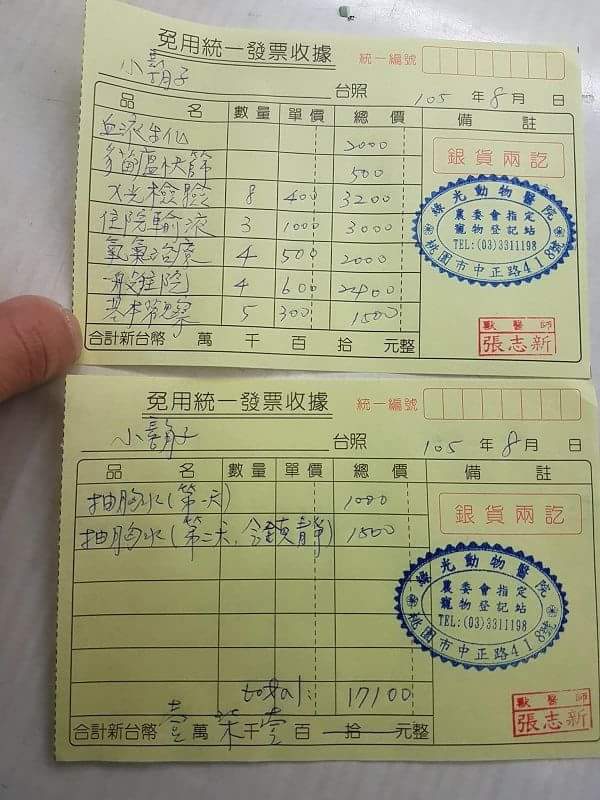 免用統一發票收據
統一編號
小靜子 台照 105 年 8 月 日
品名 數量 單價 總價 備註
血液生化 2000
貓瘟快篩 500
X光檢驗 8 400 3200
住院輸液 3 1000 3000
氧氣治療 4 500 2000
一般住院 4 600 2400
基本診察 5 300 1500
合計新台幣 萬 千 百 拾 元整
銀貨兩訖
綠光動物醫院
農委會指定
寵物登記站
TEL:(03)3311198
桃園市中正路418號
獸醫師
張志新
免用統一發票收據
統一編號
小靜子 台照 105 年 8 月 日
品名 數量 單價 總價 備註
抽胸水(第一天) 1000
抽胸水(第二天、含鎮靜) 1500
total: 17100
合計新台幣 壹萬柒千壹百拾 元整
銀貨兩訖
綠光動物醫院
農委會指定
寵物登記站
TEL:(03)3311198
桃園市中正路418號
獸醫師
張志新